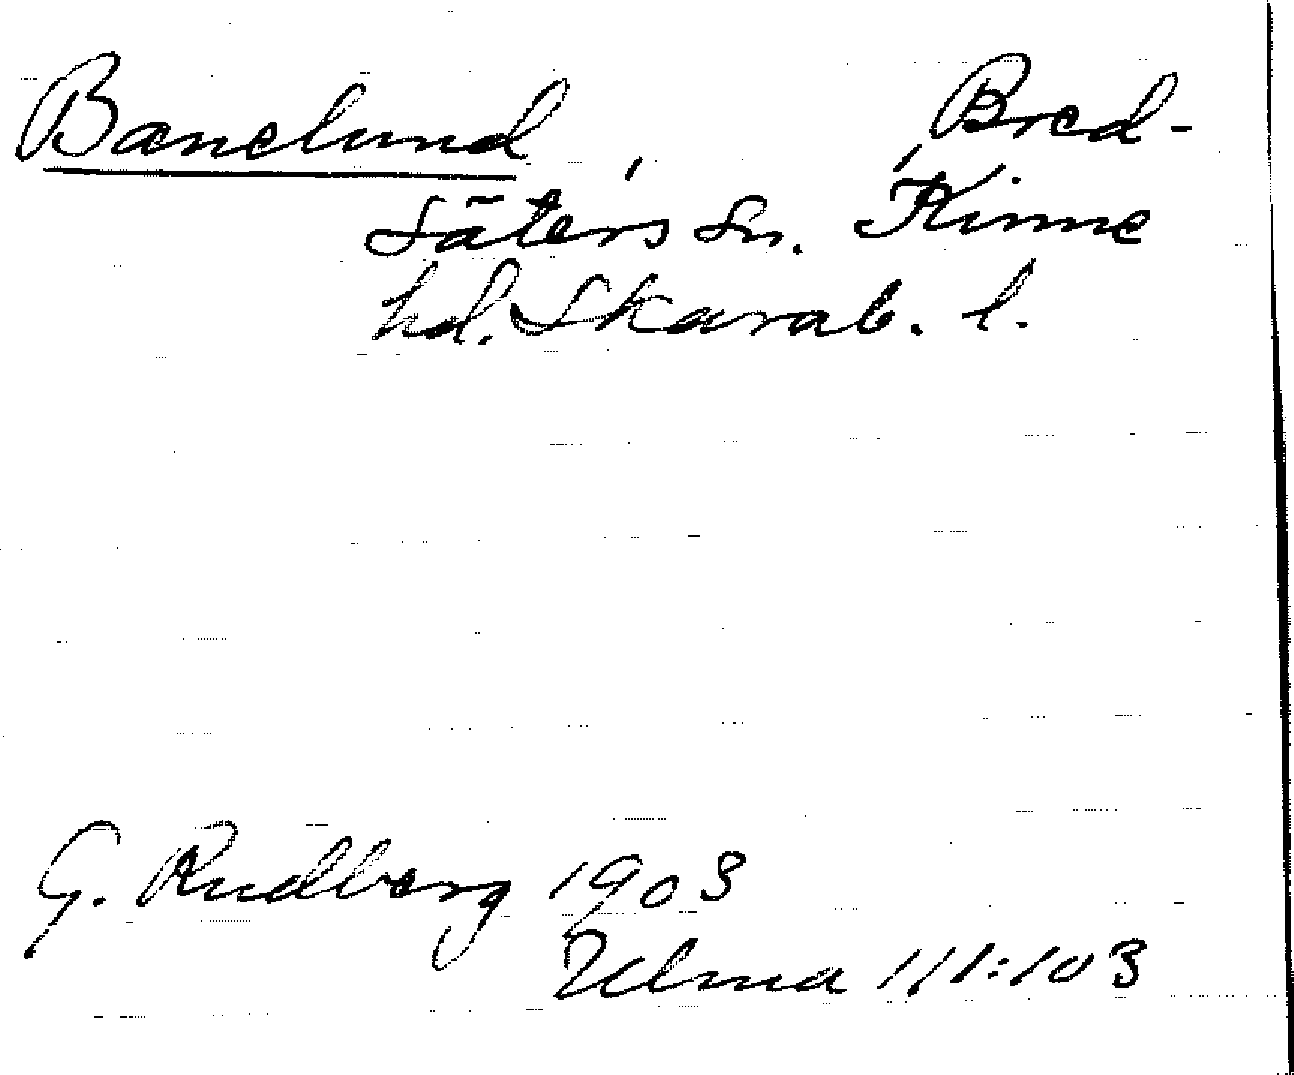 Banelund, Bred-
säters sn. Kinne
hd. Skarab. l.
G. Rudberg 1903
Ulma 111:103